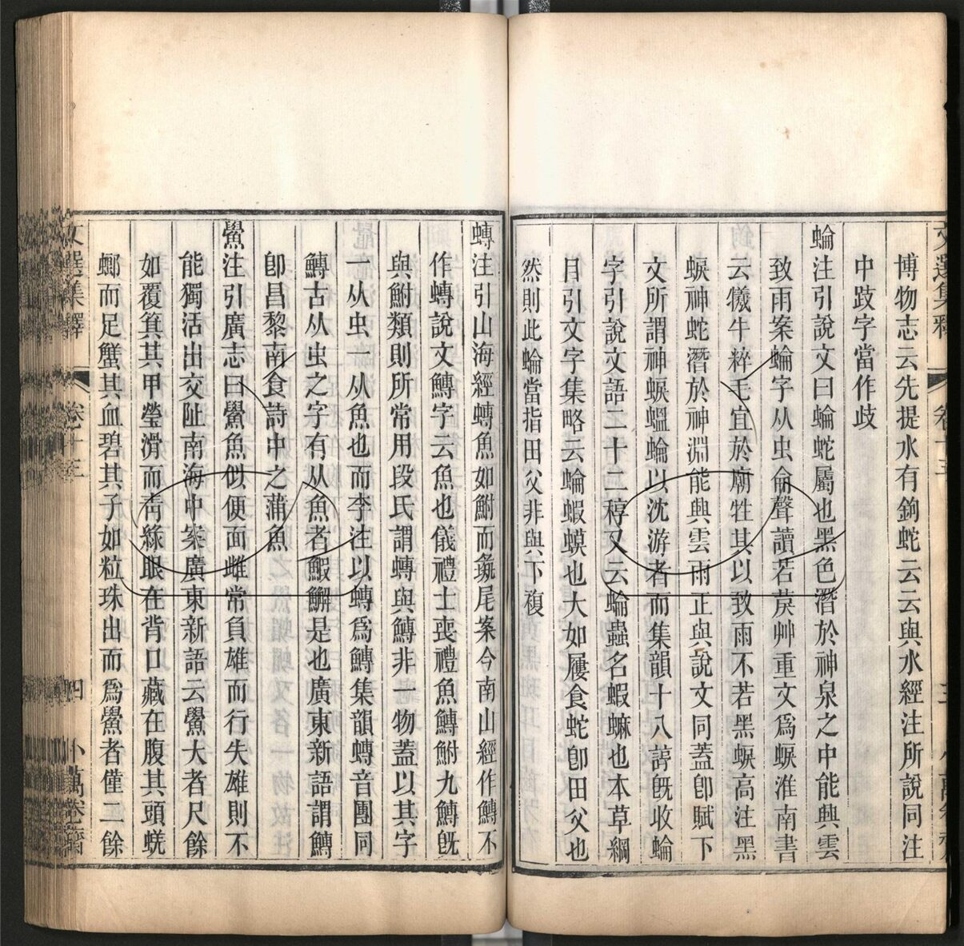 博物志云先提水有鉤蛇云云與水經注所說同注
中跂字當作歧
蜦注引說文曰蜦蛇屬也黑色潛於神泉之中能興雲
致雨案蜦字从虫侖聲讀若戾艸重文為蜧淮南書
云犧牛粹毛宜於廟牲其以致雨不若黑蜧高注黑
蜧神蛇潛於神淵能興雲雨正與說文同蓋卽賦下
文所謂神蜧蝹蜦以沈游者而集韻十八諄旣收蜦
字引說文語二十二稕又云蜦蟲名蝦蟆也本草綱
目引文字集略云蜦蝦蟆也大如屨食蛇卽田父也
然則此蜦當指田父非與下複
鱄注引山海經鱄魚如鮒而彘尾案今南山經作鱄不
作鱄說文鱄字云魚也儀禮士喪禮魚鱄鮒九鱄旣
與鮒類則所常用段氏謂鱄與鱄非一物蓋以其字
一从虫一从魚也而李注以鱄為鱄集韻鱄音團同
鱄古从虫之字有从魚者鰕鱓是也廣東新語謂鱄
卽昌黎南食詩中之蒲魚
鱟注引廣志曰鱟魚似便面雌常負雄而行失雄則不
能獨活出交阯南海中案廣東新語云鱟大者尺餘
如覆箕其甲瑩滑而靑綠眼在背口藏在腹其頭蜣
螂而足蟹其血碧其子如粒珠出而為鱟者僅二餘
文選集釋
卷十三
四
小萬卷齋